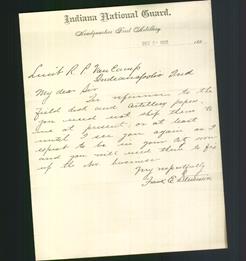 Indiana National Guard.
Headquarters First Artillery
188
Lieut R P Van Camp
Indianapolis Ind
My dear Sir
In reference to the
field desk and Artillery papers
you need not ship them to
me at present, or at least
until I see you again as I
expect to be in your city soon
and you will need them to fix
up the business
Very respectfully
Frank E